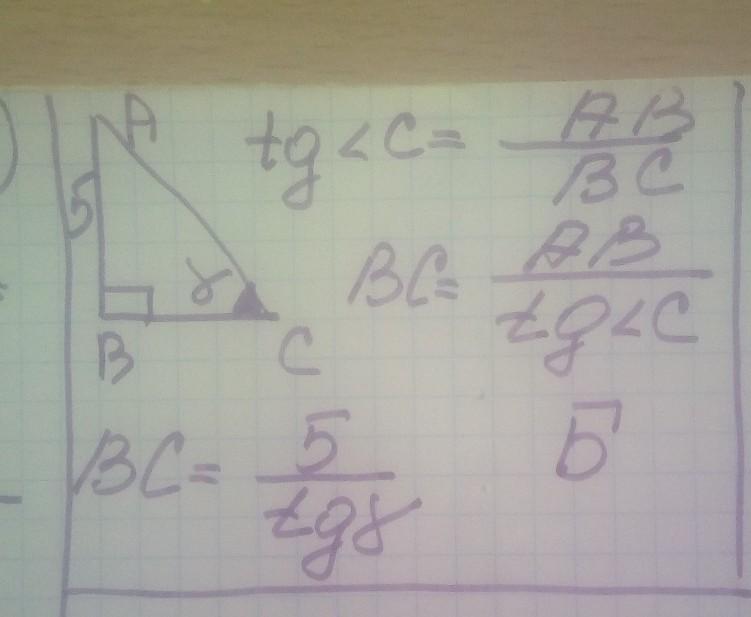 A
5
γ
B
C
tg<C= AB
BC
BC= AB
tg<C
BC= 5
tgγ
Б